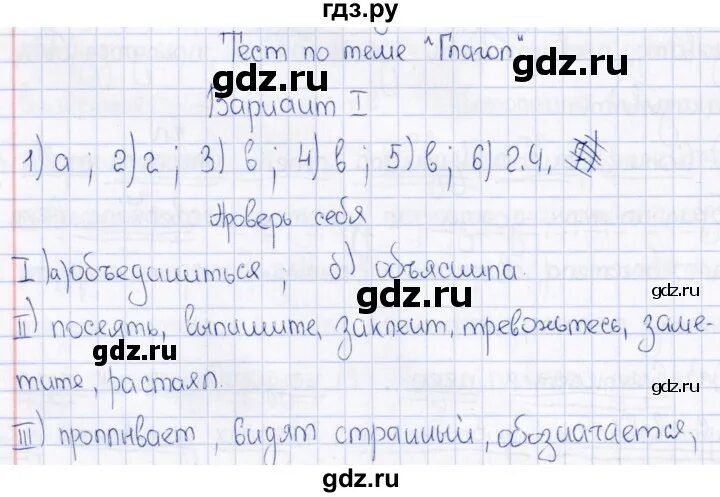 гдз.ру
Тест по теме "Глагол"
gdz.ru gdz.ru
Вариант I
1) а; 2) г; 3) в; 4) в; 5) в; 6) 2.4.
Проверь себя
I) а) объединиться, б) объяснила
gdz.ru gdz.ru
II) посеять, выпишите, заклеит, тревожьтесь, заме-
gdz.ru gdz.ru
тите, растаял. gdz.ru
III) проплывает, видят странный, обозначается,
gdz.ru